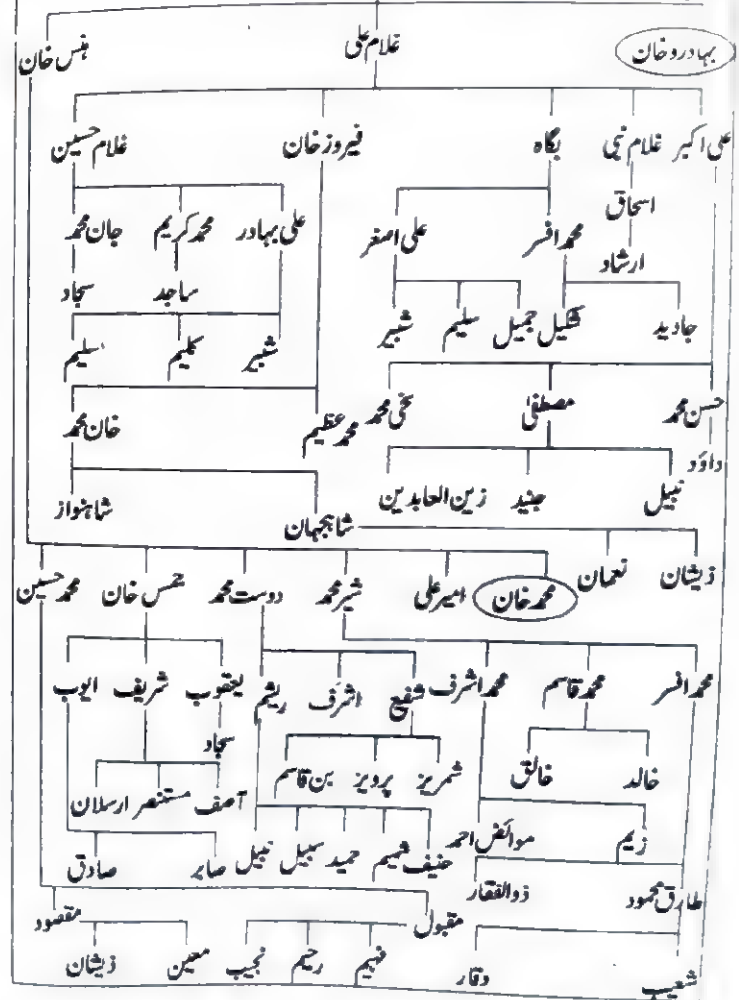 بہادرو خان غلام علی ہنس خان
علی اکبر غلام نبی بگاہ فیروز خان غلام حسین
اسحاق
محمد افسر علی اصغر علی بہادر محمد کریم جان محمد
ارشاد
ساجد سجاد
جاوید شکیل جمیل سلیم شبیر
شبیر کلیم سلیم
حسن محمد مصطفیٰ سخی محمد محمد عظیم خان محمد
داؤد
نبیل جنید زین العابدین شاہنواز
شاہجہان
ذیشان نعمان
محمد خان امیر علی شیر محمد دوست محمد شمس خان محمد حسین
محمد افسر محمد قاسم محمد اشرف شفیع اشرف ریشم یعقوب شریف ایوب
سجاد
خالد خالق شمریز پرویز بن قاسم
آصف مستنصر ارسلان
زعیم موائض احمد
حنیف شمیم حمید سبیل نبیل صابر صادق
طارق محمود ذوالفقار
مقبول مقصود
شعیب وقار فہیم رحیم نجیب معین ذیشان